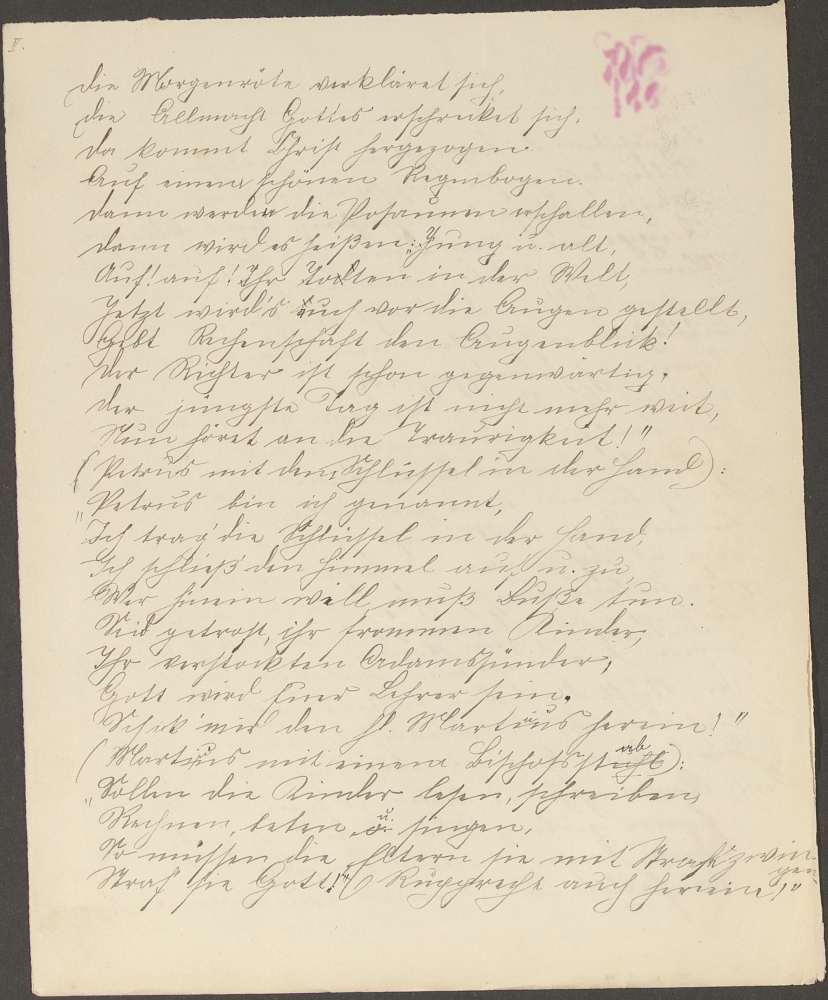 V.
Die Morgenröte verkläret sich,
die Allmacht Gottes erschrecket sich.
Da kommt Christ hergezogen
Auf einem schönen Regenbogen.
Dann werden die Posaunen erschallen,
dann wird es heißen: „Jung u. alt,
Auf! auf! Ihr Todten in der Welt,
Jetzt wird's euch vor die Augen gestellt,
Gebt Rechenschaft den Augenblick!
Der Richter ist schon gegenwärtig.
Der jüngste Tag ist nicht mehr weit,
Nun höret an die Traurigkeit!"
(Petrus mit dem Schlüssel in der Hand):
„Petrus bin ich genannt,
Ich trag' die Schlüssel in der Hand,
Ich schließ' den Himmel auf u. zu,
Wer hinein will, muß Buße tun.
Seid getrost, ihr frommen Kinder,
Ihr verstockten Adamssünder,
Gott wird Euer Lehrer sein.
Schick' mir den hl. Martinus herein!"
(Martinus mit einem Bischofsstab):
„Sollen die Kinder lesen, schreiben,
Rechnen, beten u. singen,
So müssen die Eltern sie mit Straf' zwingen.
Straf' sie Gott! (Rupprecht auch herein!"